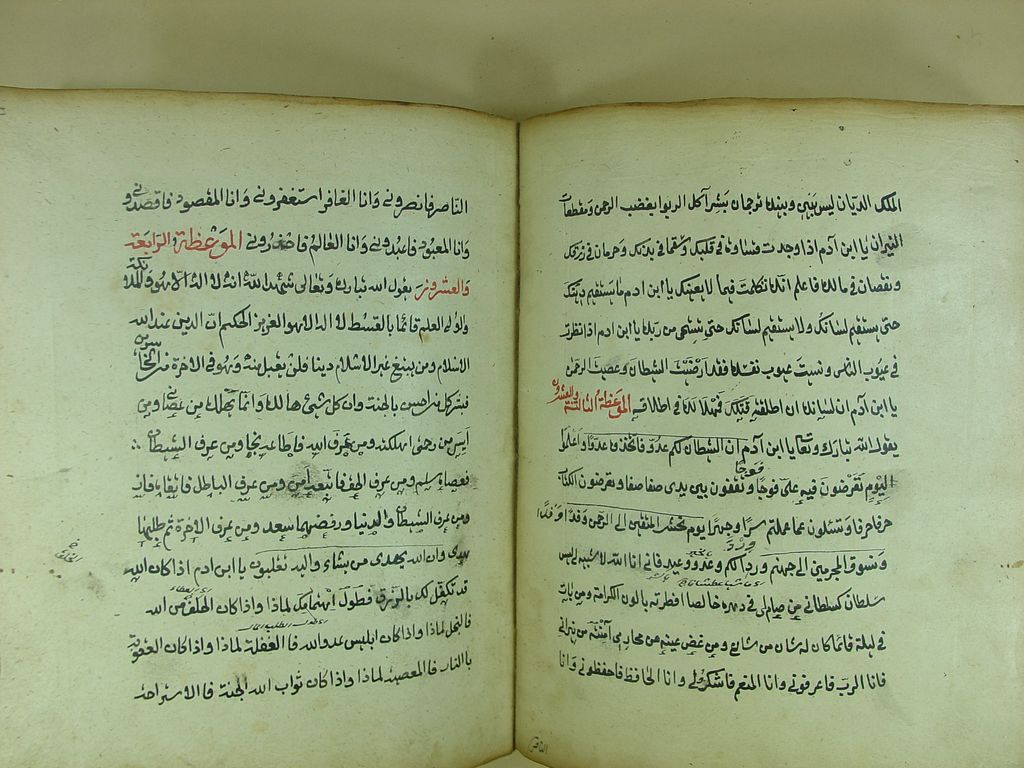 الملك الديان ليس بيني وبينه ترجمان بشر آكل الربوا بغضب الرحمن ومقطعات
النيران يا ابن آدم اذا وجدت قساوة في قلبك وسقما في بدنك وحرمان في رزقك
ونقصان في مالك فاعلم انك تكلمت فيما لا يعنيك يا ابن ادم ما يستقيم دينك
حتى يستقيم لسانك ولا يستقيم لسانك حتى تستحي من ربك يا ابن ادم اذا نظرت
في عيوب الناس ونسيت عيوب نفسك فقد ارضيت الشيطان وعصيت الرحمن
يا ابن آدم ان لسانك ان اطلقته قتلك فهلاكك في اطلاقه الموعظة الثالثة والعشرون
يقول الله تبارك وتعا يا ابن آدم ان الشيطان لكم عدو فاتخذوه عدوا واعلموا
اليوم تعرضون فيه علي فوجا فوجا وتقفون بين يدى صفا صفا وتقرضون الكتاب
حرفا حرفا وتسئلون عما عملتم سرا وجهرا يوم نحشر المتقين الى الرحمن وفدا وفدا
ونسوق المجرمين الى جهنم وردا وردا لكم وعد ووعيد فاني انا الله لا شبيه لي ليس
سلطان كسلطاني من صام لي في دهره خالصا افطرته بالوان الكرامة ومن بات
في ليلة قائما كان له شان من شاني ومن غض عينيه من محارمي آمنته من نيراني
فانا الرب فاعرفوني وانا المنعم فاشكرو لي وانا الحافظ فاحفظوني وانا
الناصر
الناصر فانصروني وانا الغافر استغفروني وانا المقصود فاقصدوني
وانا المعبود فاعبدوني وانا العالم فاحذروني الموعظة الرابعة
والعشرون يقول الله تبارك وتعالى شهد الله انه لا اله الا هو والملائكة
واولو العلم قائما بالقسط لا اله الا هو العزيز الحكيم ان الدين عند الله
الاسلام ومن يبتغ غير الاسلام دينا فلن يقبل منه وهو في الاخرة من الخاسرين
فبشر كل من احسن بالجنة وان كل شيئ هالك وانما تهلك من عصاني ومن
أيس من رحمتي اهلكته ومن عرف الله فاطاعه نجا ومن عرف الشيطان
فعصاه سلم ومن عرف الحق فاتبعه امن ومن عرف الباطل فاتقاه فاز
ومن عرف الشيطان والدنيا ورفضهما سعد ومن عرف الاخرة ثم طلبها
هدى وان الله يهدى من يشاء واليه تقلبون يا ابن ادم اذا كان الله
قد تكفل لك بالرزق فطول اهتمامك لماذا واذا كان الخلف من الله
فالبخل لماذا واذا كان ابليس عدو الله فا الغفلة لماذا واذا كان العقوبة
بالنار فا المعصية لماذا واذا كان ثواب الله الجنة فا الاستراحة